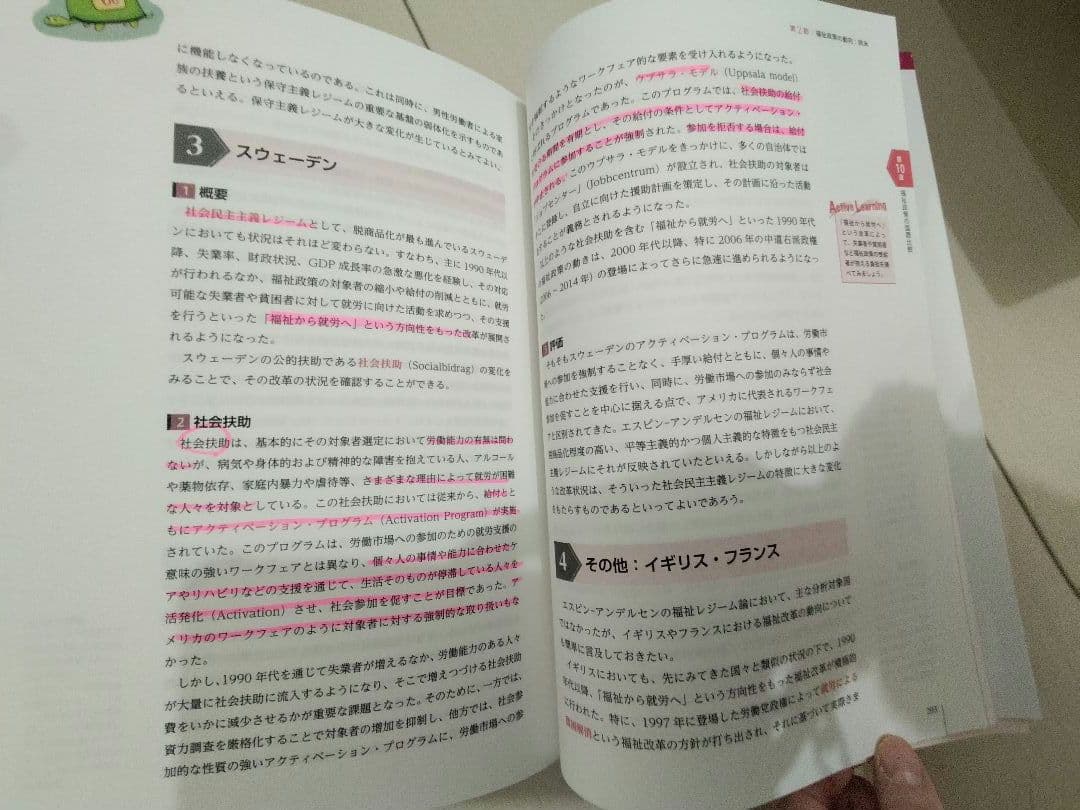 に機能しなくなっているのである。これは同時に、男性労働者による家
族の扶養という保守主義レジームの重要な基盤の弱体化を示すものであ
るといえる。保守主義レジームが大きな変化が生じているとみてよい。
3 スウェーデン
1 概要
社会民主主義レジームとして、脱商品化が最も進んでいるスウェーデ
ンにおいても状況はそれほど変わらない。すなわち、主に1990年代以
降、失業率、財政状況、GDP成長率の急激な悪化を経験し、その対応
が行われるなか、福祉政策の対象者の縮小や給付の削減とともに、就労
可能な失業者や貧困者に対して就労に向けた活動を求めつつ、その支援
を行うといった「福祉から就労へ」という方向性をもった改革が展開さ
れるようになった。
スウェーデンの公的扶助である社会扶助(Socialbidrag)の変化を
みることで、その改革の状況を確認することができる。
2 社会扶助
社会扶助は、基本的にその対象者選定において労働能力の有無は問わ
ないが、病気や身体的および精神的な障害を抱えている人、アルコール
や薬物依存、家庭内暴力や虐待等、さまざまな理由によって就労が困難
な人々を対象としている。この社会扶助においては従来から、給付とと
もにアクティベーション・プログラム(Activation Program)が実施
されていた。このプログラムは、労働市場への参加のための就労支援の
意味の強いワークフェアとは異なり、個々人の事情や能力に合わせたケ
アやリハビリなどの支援を通じて、生活そのものが停滞している人々を
活発化(Activation)させ、社会参加を促すことが目標であった。ア
メリカのワークフェアのように対象者に対する強制的な取り扱いもな
かった。
しかし、1990年代を通じて失業者が増えるなか、労働能力のある人々
が大量に社会扶助に流入するようになり、そこで増えつづける社会扶助
費をいかに減少させるかが重要な課題となった。そのために、一方では、
資力調査を厳格化することで対象者の増加を抑制し、他方では、社会参
加的な性質の強いアクティベーション・プログラムに、労働市場への参
第2節 福祉政策の動向:欧米
するようなワークフェア的な要素を受け入れるようになった。
きっかけとなったのが、ウプサラ・モデル(Uppsala model)
れるプログラムであった。このプログラムでは、社会扶助の給付
期間を有期とし、その給付の条件としてアクティベーション・
プログラムに参加することが強制された。参加を拒否する場合は、給付
このウプサラ・モデルをきっかけに、多くの自治体では
ョブセンター」(Jobbcentrum)が設立され、社会扶助の対象者は
に登録し、自立に向けた援助計画を策定し、その計画に沿った活動
することが義務とされるようになった。
のような社会扶助を含む「福祉から就労へ」といった1990年代
福祉政策の動きは、2000年代以降、特に2006年の中道右派政権
2006~2014年)の登場によってさらに急速に進められるようになっ
評価
そもそもスウェーデンのアクティベーション・プログラムは、労働市
場への参加を強制することなく、手厚い給付とともに、個々人の事情や
能力に合わせた支援を行い、同時に、労働市場への参加のみならず社会
参加を促すことを中心に据える点で、アメリカに代表されるワークフェ
と区別されてきた。エスピン-アンデルセンの福祉レジームにおいて、
脱商品化程度の高い、平等主義的かつ個人主義的な特徴をもつ社会民主
主義レジームにそれが反映されていたといえる。しかしながら以上のよ
うな改革状況は、そういった社会民主主義レジームの特徴に大きな変化
をもたらすものであるといってよいであろう。
4 その他:イギリス・フランス
エスピン-アンデルセンの福祉レジーム論において、主な分析対象国
ではなかったが、イギリスやフランスにおける福祉改革の動向について
も簡単に言及しておきたい。
イギリスにおいても、先にみてきた国々と類似の状況の下で、1990
年代以降、「福祉から就労へ」という方向性をもった福祉改革が積極的
に行われた。特に、1997年に登場した労働党政権によって就労による
貧困解消という福祉改革の方針が打ち出され、それに基づいて実際さま
第10章
福祉政策の国際比較
Active Learning
「福祉から就労へ」
という改革によっ
て、失業者や貧困者
べてみましょう。
293